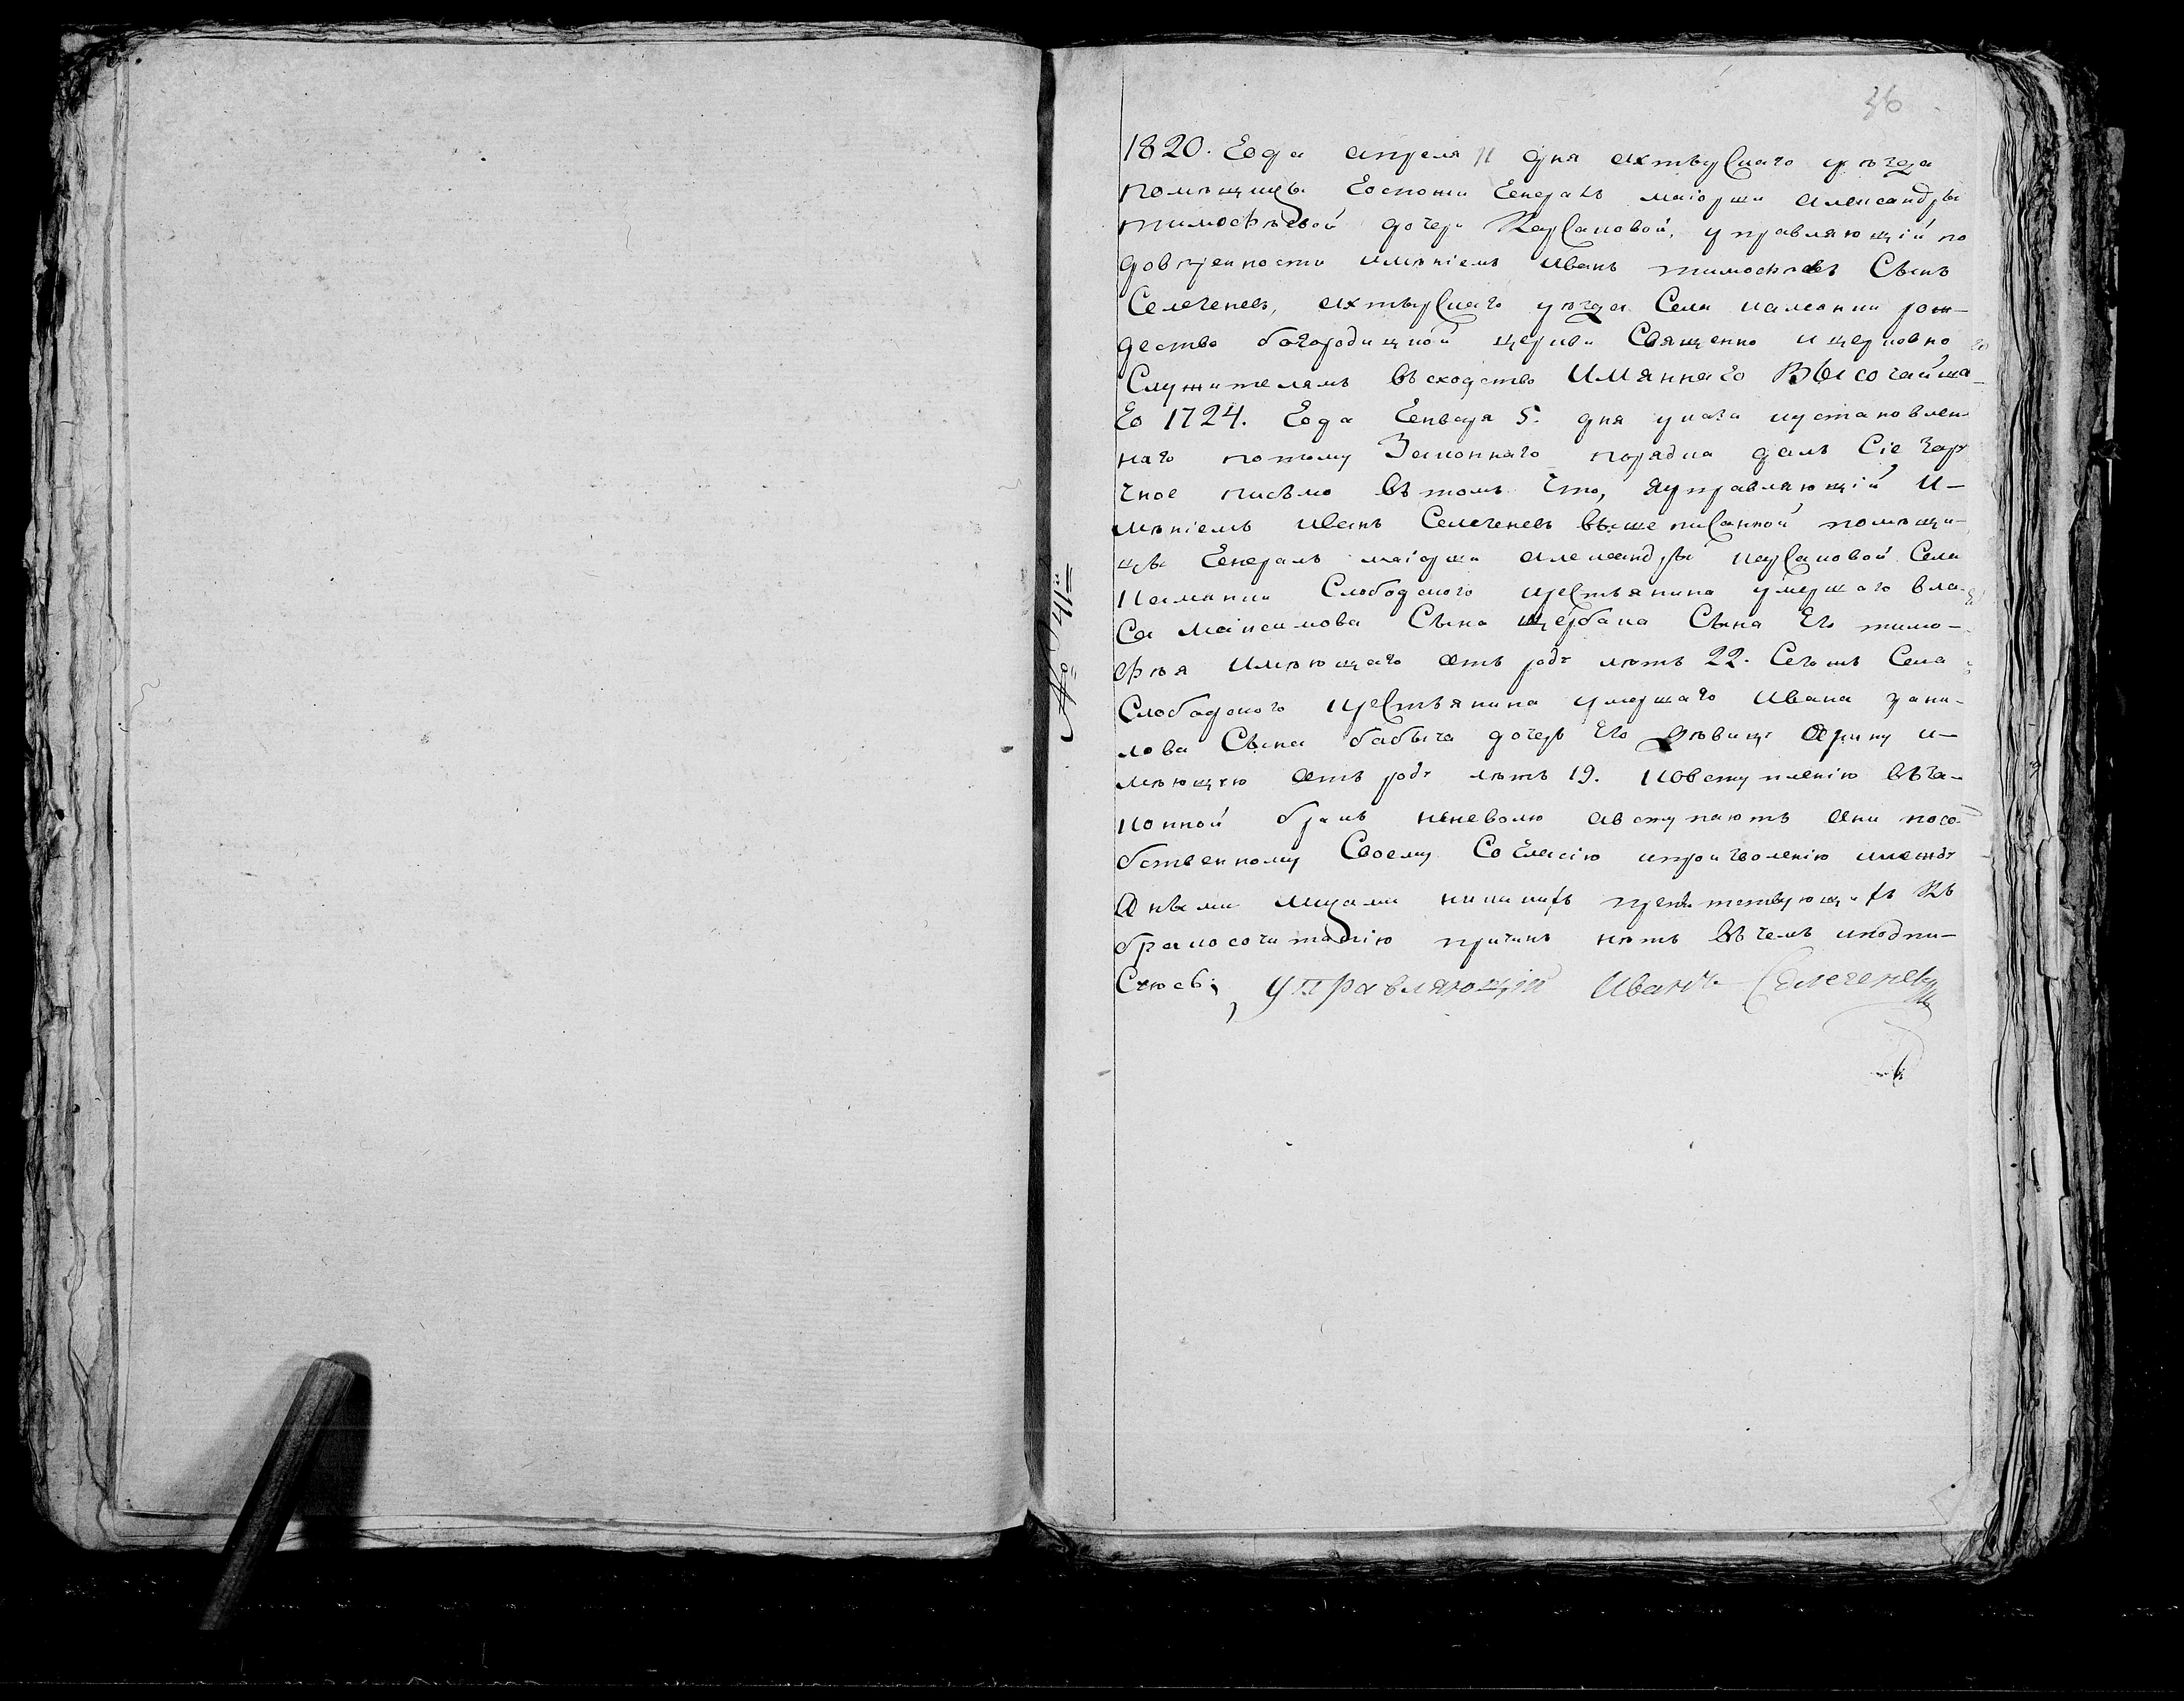 36
1820. Года апреля 11 дня ахтырскаго уѣзда
помѣщицы Госпожи Генералъ маіорши александры
тимофѣевой дочери Карсаковой, управляющій по
довѣренности имѣніемъ иванъ тимофѣевъ Сынъ
Селегеневъ, ахтырскаго уѣзда Села каменки рож-
дество богородицкой церкви Священно и церковно
Служителямъ въ сходство Имяннаго Высочайша-
го 1724. Года Генваря 5. дня указа и установлен-
наго по тому Законнаго порядка далъ Сіе
письмо въ томъ что, я управляющій И-
мѣніемъ иванъ Селегеневъ вышеписанной помѣщи-
цы Генералъ маіорши александры карсаковой Села
Каменки Слободского крестьянина умершаго вла-
са максимова Сына щербака Сына Его тимо-
фѣя имѣющаго отъ роду лѣтъ 22. Сегожъ Села
Слободского крестьянина умершаго ивана
лова Сына бабыча дочерь Его дѣвицу Орину и-
мѣющую отъ роду лѣтъ 19. ко вступленію въ за-
конной бракъ неневолю а вступаютъ они по со-
бственному Своему Согласію и произволенію и между
Оными лицами никакихъ препятствующихъ Къ
бракосочитанію причинъ нѣтъ въ чемъ и подпи-
Суюсь; управляющій Иванъ Селегеневъ
№ 41й